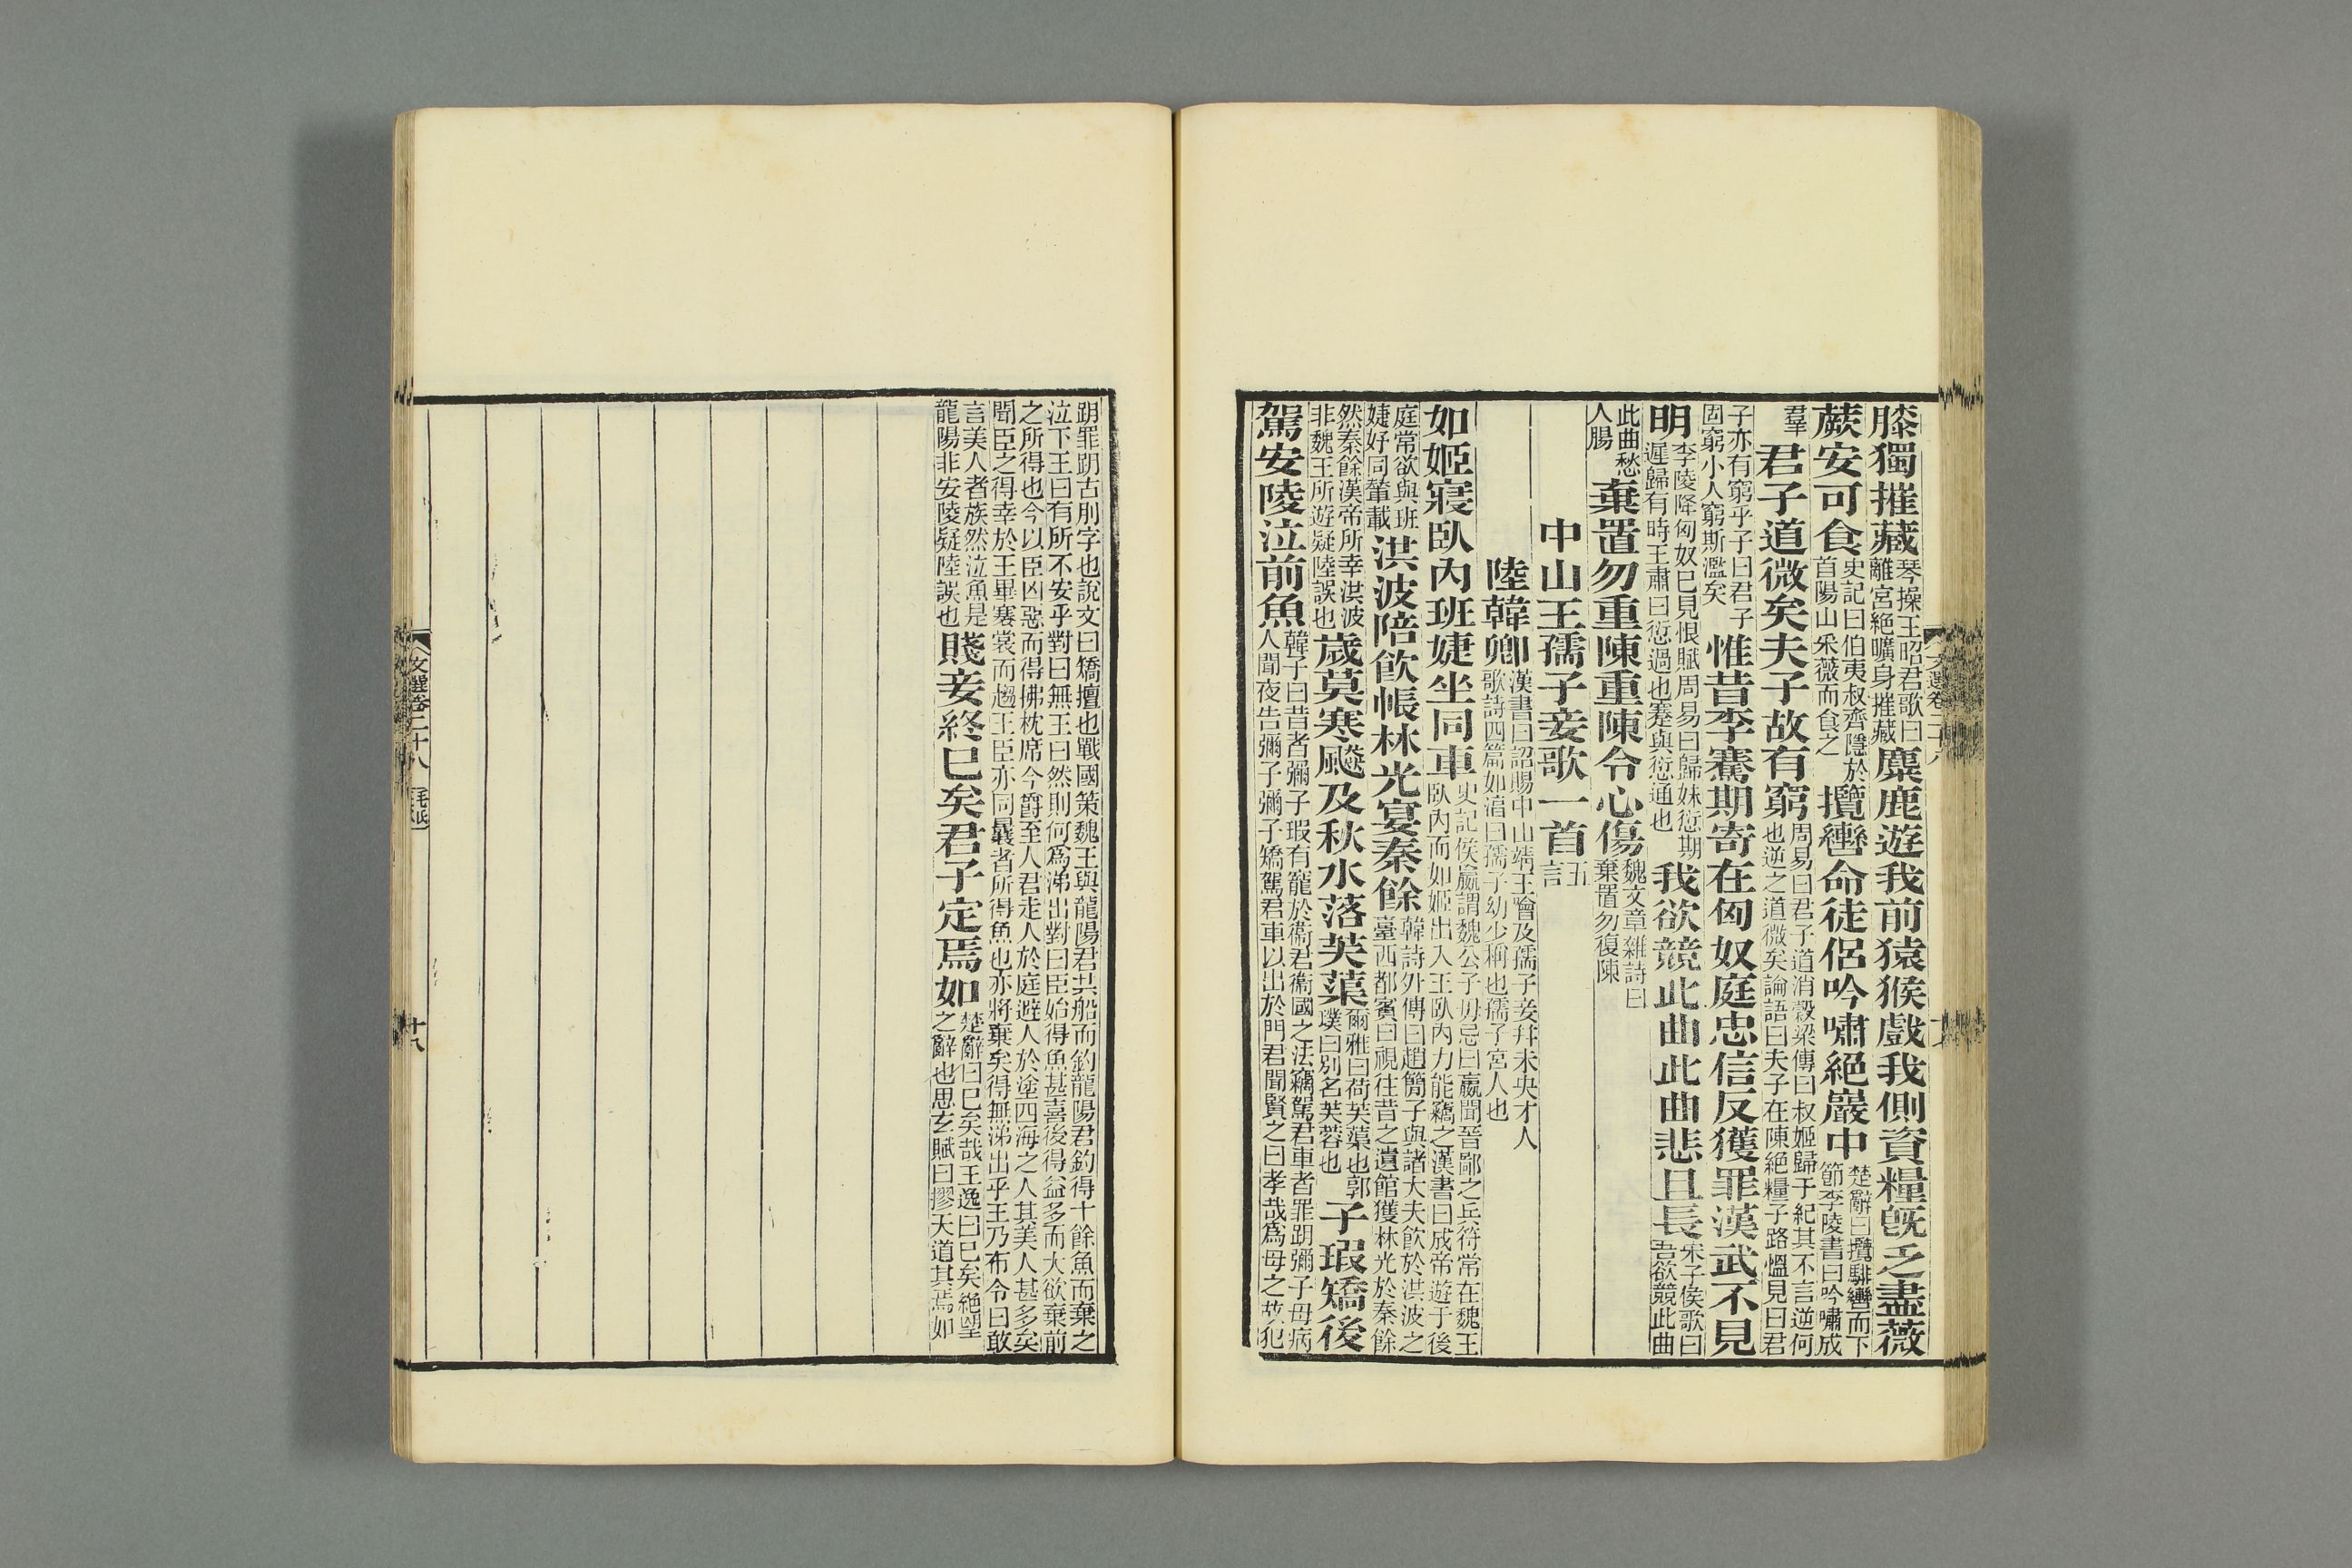 膝獨摧藏琴操王昭君歌曰離宮絶曠身摧藏麋鹿遊我前猿猴戲我側資糧旣乏盡薇
蕨安可食史記曰伯夷叔齊隱於首陽山采薇而食之攬轡命徒侶吟嘯絕巖中楚辭曰攬騑轡而下節李陵書曰吟嘯成
羣君子道微矣夫子故有窮周易曰君子道消穀梁傳曰叔姬歸于紀其不言逆何也逆之道微矣論語曰夫子在陳絶糧子路慍見曰君
子亦有窮乎子曰君子固窮小人窮斯濫矣惟昔李騫期寄在匈奴庭忠信反獲罪漢武不見
明李陵降匈奴已見恨賦周易曰歸妹愆期遲歸有時王肅曰愆過也蹇與愆通也我欲競此曲此曲悲且長宋子侯歌曰吾欲競此曲
此曲愁人腸棄置勿重陳重陳令心傷魏文章雜詩曰棄置勿復陳
中山王孺子妾歌一首五言
陸韓卿漢書曰詔賜中山靖王噲及孺子妾幷未央才人歌詩四篇如湻曰孺子幼少稱也孺子宮人也
如姬寢臥內班婕坐同車史記侯嬴謂魏公子毋忌曰嬴聞晉鄙之兵符常在魏王臥內而如姬出入王臥內力能竊之漢書曰成帝遊于後
庭常欲與班婕妤同輦載洪波陪飮帳林光宴秦餘韓詩外傳曰趙簡子與諸大夫飮於洪波之臺西都賓曰視往昔之遺館獲林光於秦餘
然秦餘漢帝所幸洪波非魏王所遊疑陸誤也歲莫寒飈及秋水落芙蕖爾雅曰荷芙蕖也郭璞曰別名芙蓉也子瑕矯後
駕安陵泣前魚韓子曰昔者彌子瑕有寵於衞君衞國之法竊駕君車者罪跀彌子母病人聞夜告彌子彌子矯駕君車以出於門君聞賢之曰孝哉爲母之故犯
跀罪跀古刖字也說文曰矯擅也戰國策魏王與龍陽君共船而釣龍陽君釣得十餘魚而棄之泣下王曰有所不安乎對曰無王曰然則何爲涕出對曰臣始得魚甚喜後得益多而大欲棄前
之所得也今以臣凶惡而得拂枕席今爵至人君走人於庭避人於塗四海之人其美人甚多矣聞臣之得幸於王畢褰裳而趨王臣亦同曩者所得魚也亦將棄矣得無涕出乎王乃布令曰敢
言美人者族然泣魚是龍陽非安陵疑陸誤也賤妾終已矣君子定焉如楚辭曰已矣哉王逸曰已矣絶望之辭也思玄賦曰摎天道其焉如
文選卷二十八
十八